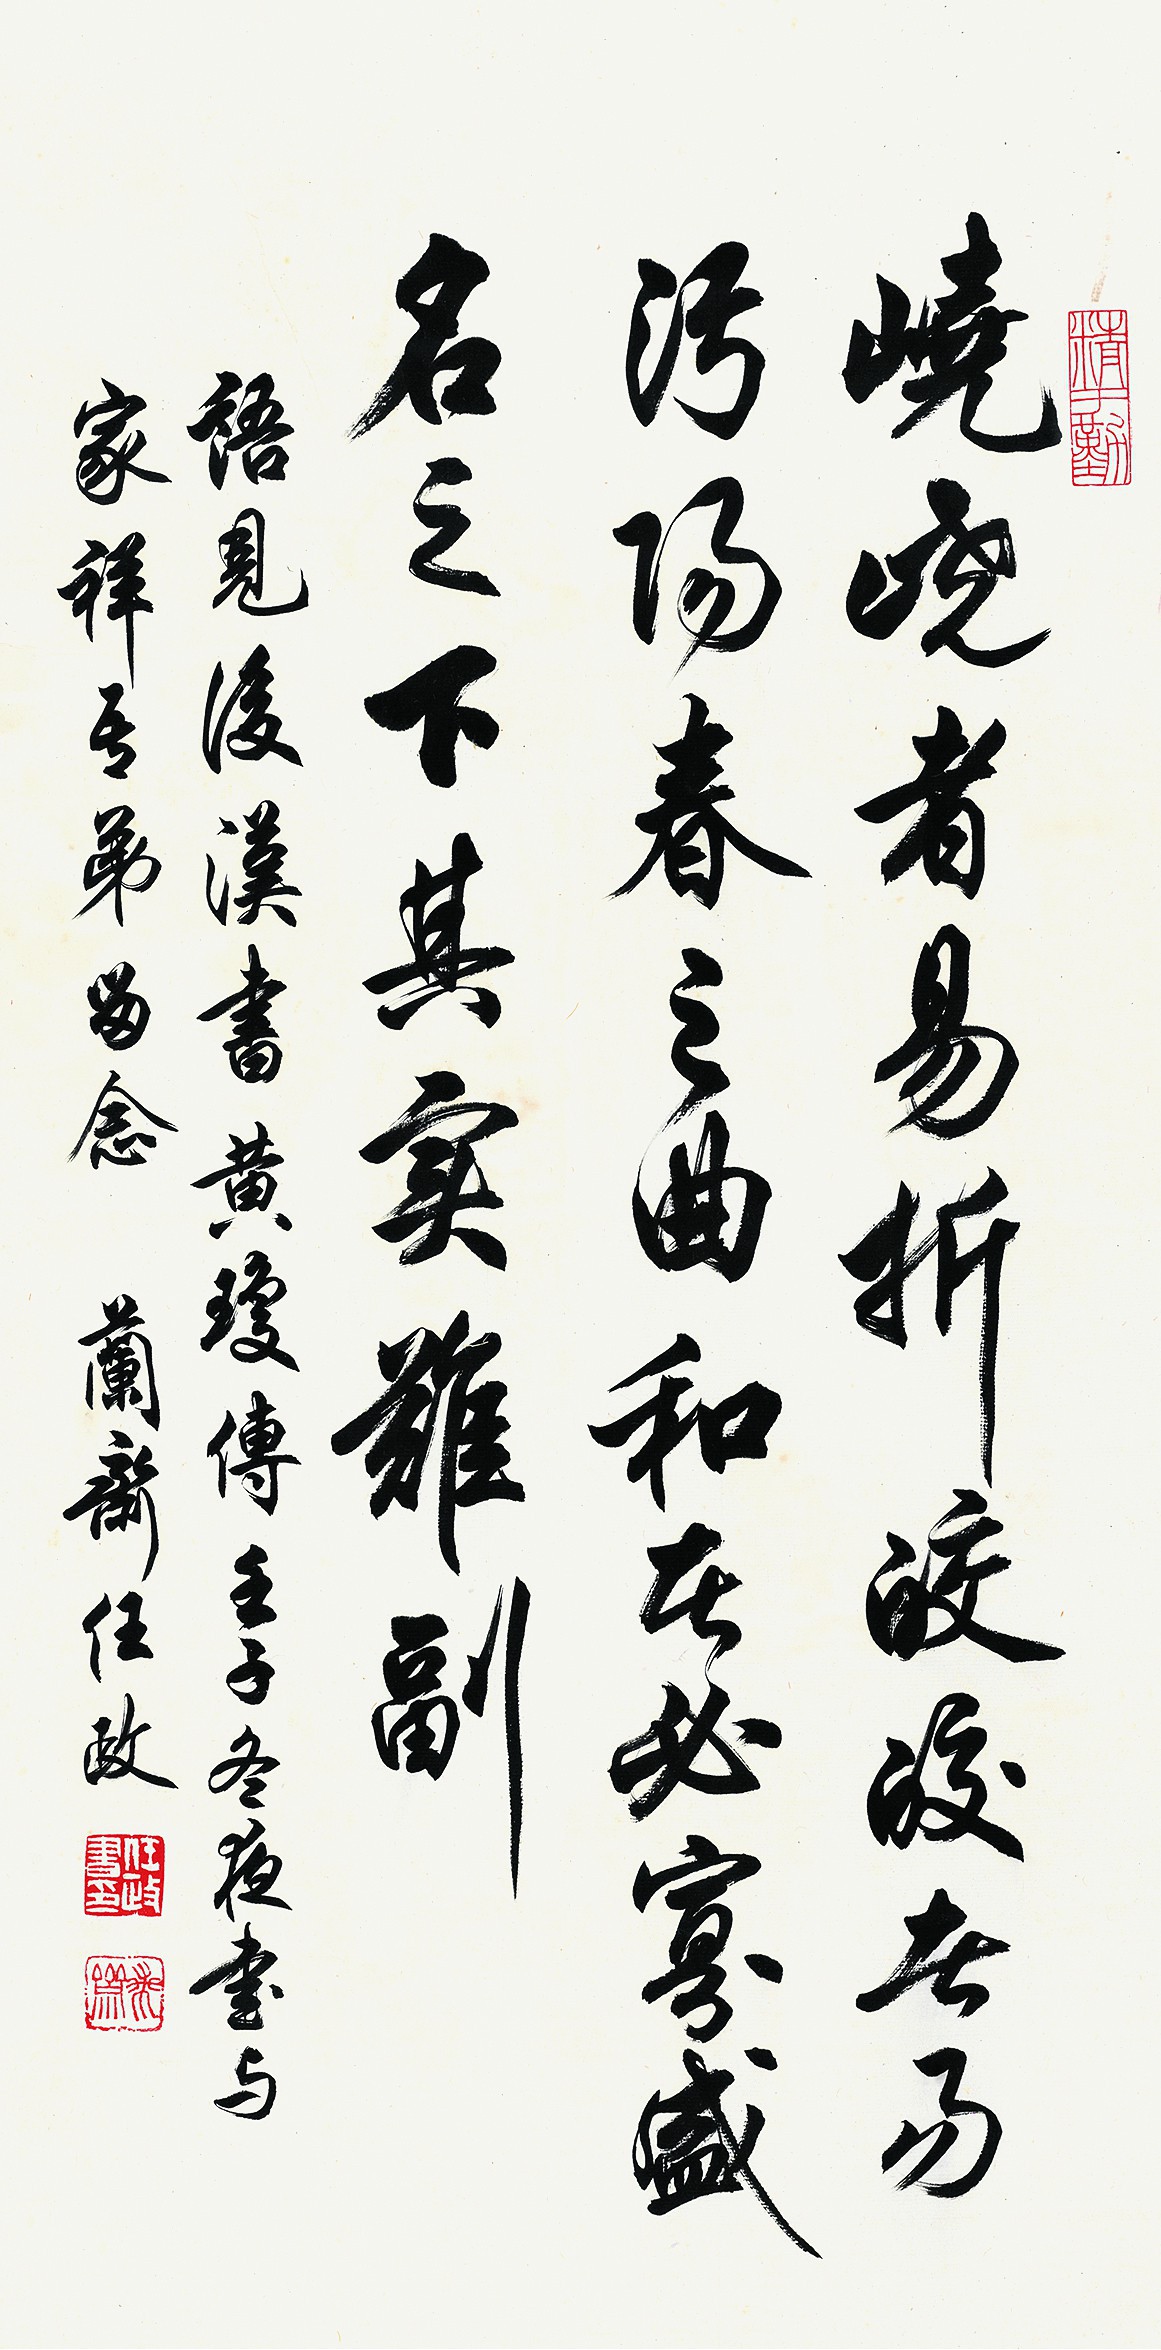 精于勤
嶢嶢者易折皎皎者易
污陽春之曲和者必寡盛
名之下其实難副
語見後漢書黄瓊傳壬子冬夜書与
家祥吾弟留念 蘭齋任政
任政書印